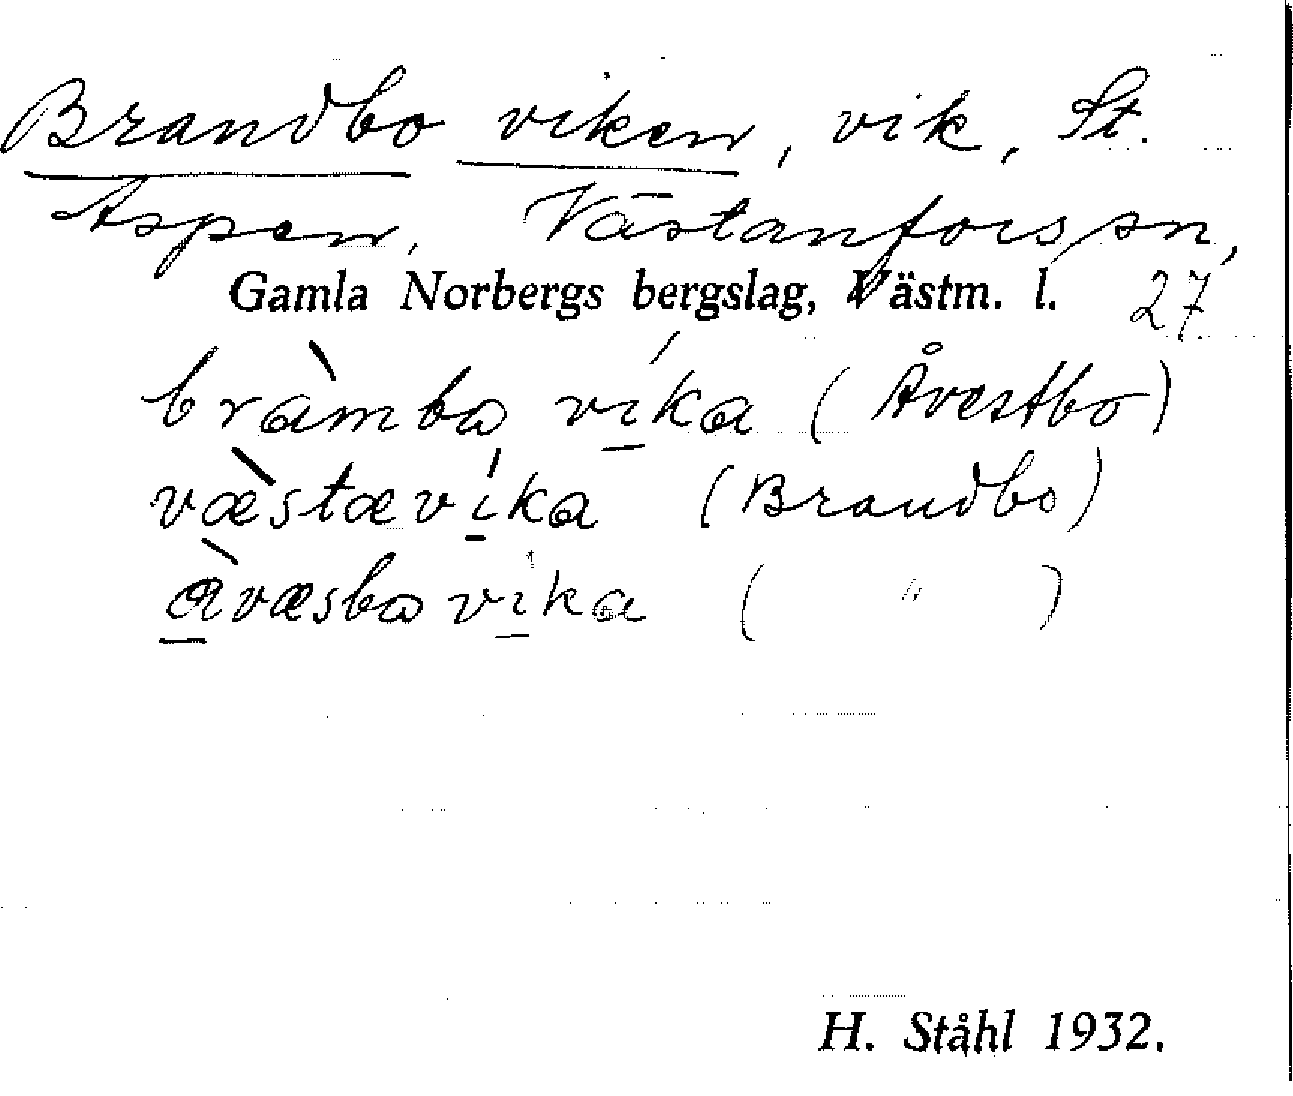 Brandbo viken, vik, St.
Aspen, Västanfors sn,
Gamla Norbergs bergslag, Västm. l. 27
bràmba víka (Åvestbo)
væ̀stævíka (Brandbo)
àvæsba vika ( " )
H. Ståhl 1932.